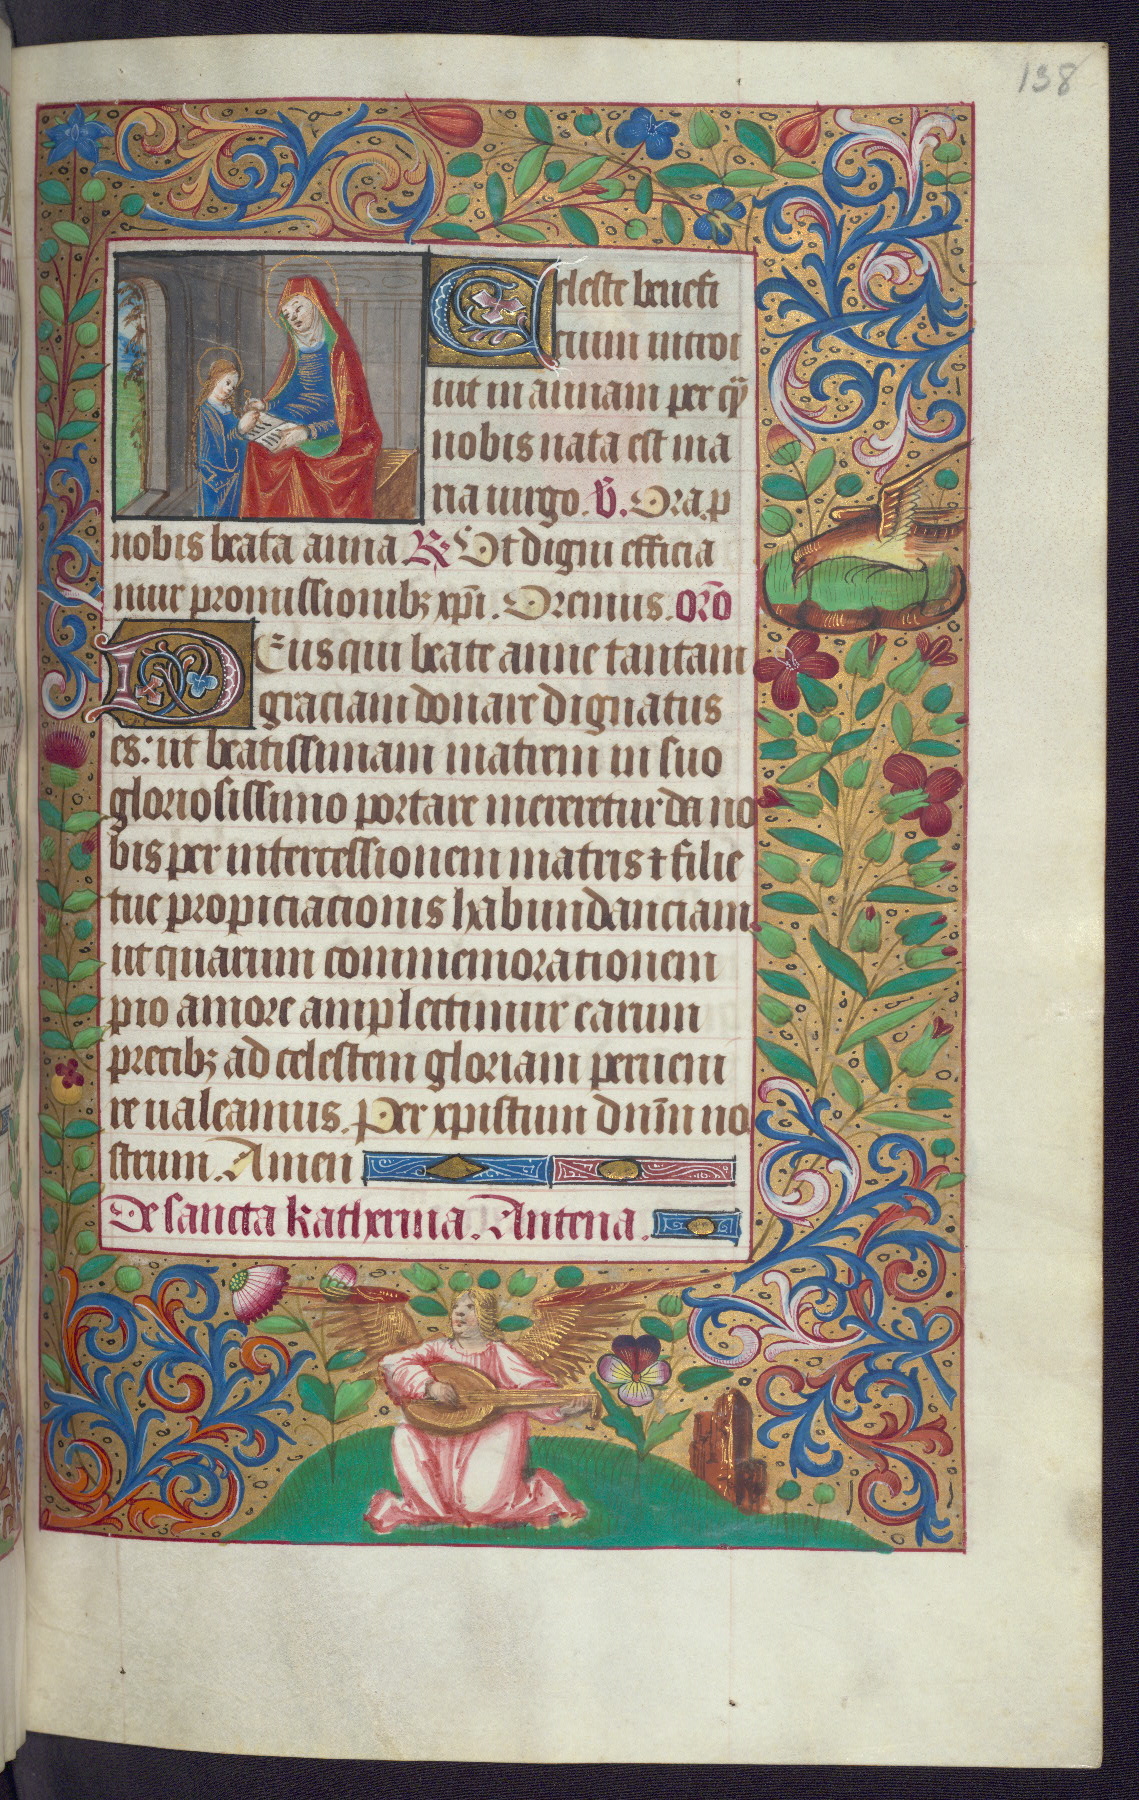 138
Celeste benefi
cium introi
uit in annam per qua͂
nobis nata est ma
ria uirgo. V. Ora p
nobis beata anna R Ut digni efficia
mur promissionibꝫ xp̄i. Oremus. Or̄o
Deus qui beate anne tantam
graciam donare dignatus
es: ut beatissimam matrem in suo
gloriosissimo portare mereretur da no
bis per intercessionem matris ⁊ filie
tue propiciacionis habundanciam
ut quarum commemorationem
pio amore amplectimur earum
precibꝫ ad celestem gloriam perueni
re ualeamus. Per xpistum dn̄m no
strum. Amen
De sancta katherina. Antena.